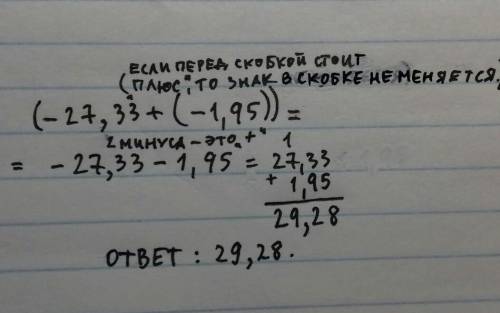 ЕСЛИ ПЕРЕД СКОБКОЙ СТОИТ
(„ПЛЮС", ТО ЗНАК В СКОБКЕ НЕ МЕНЯЕТСЯ.)
(-27,33 + (-1,95)) =
2 МИНУСА – ЭТО „+"
= -27,33 - 1,95 = 27,33
1
+ 1,95
29,28
ОТВЕТ : 29,28.